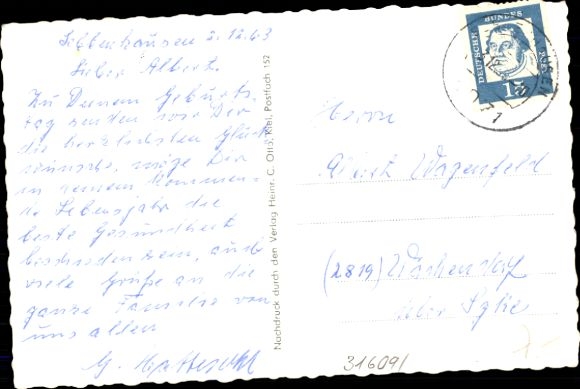 2.12.63
Lieber Albert.
Zu Deinem Geburts
tag senden wir Dir
die herzlichsten Glück
wünsche, möge Dir
in Deinem kommen
de Lebensjahr die
beste Gesundheit
beschieden sein, auch
viele Grüße an die
ganze Familie von
uns allen
Nachdruck durch den Verlag Heinr. C. Otto, Kiel, Postfach 152
DEUTSCHE BUNDESPOST
15
Herrn
Wagenfeld
(2819) Wachendorf
über Syke
316091